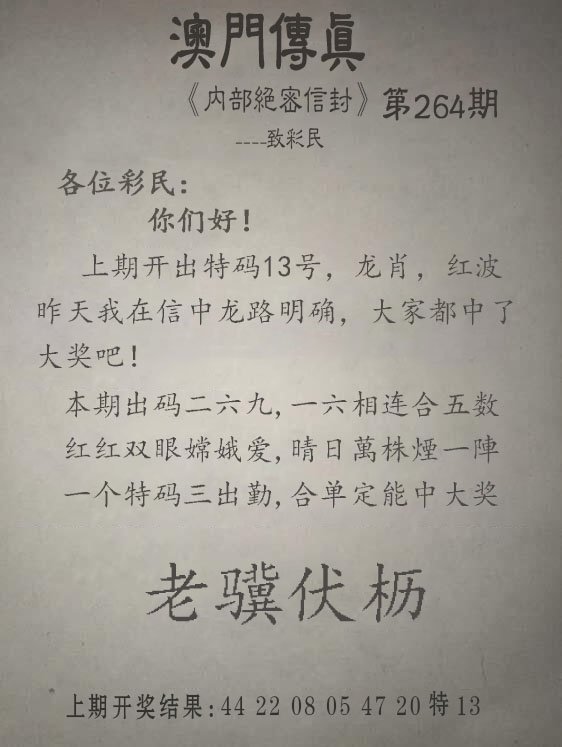 澳門傳真
《内部絕密信封》第264期
----致彩民
各位彩民：
你们好！
上期开出特码13号，龙肖，红波
昨天我在信中龙路明确，大家都中了
大奖吧！
本期出码二六九,一六相连合五数
红红双眼嫦娥爱,晴日萬株煙一陣
一个特码三出勤,合单定能中大奖
老骥伏枥
上期开奖结果:44 22 08 05 47 20 特 13